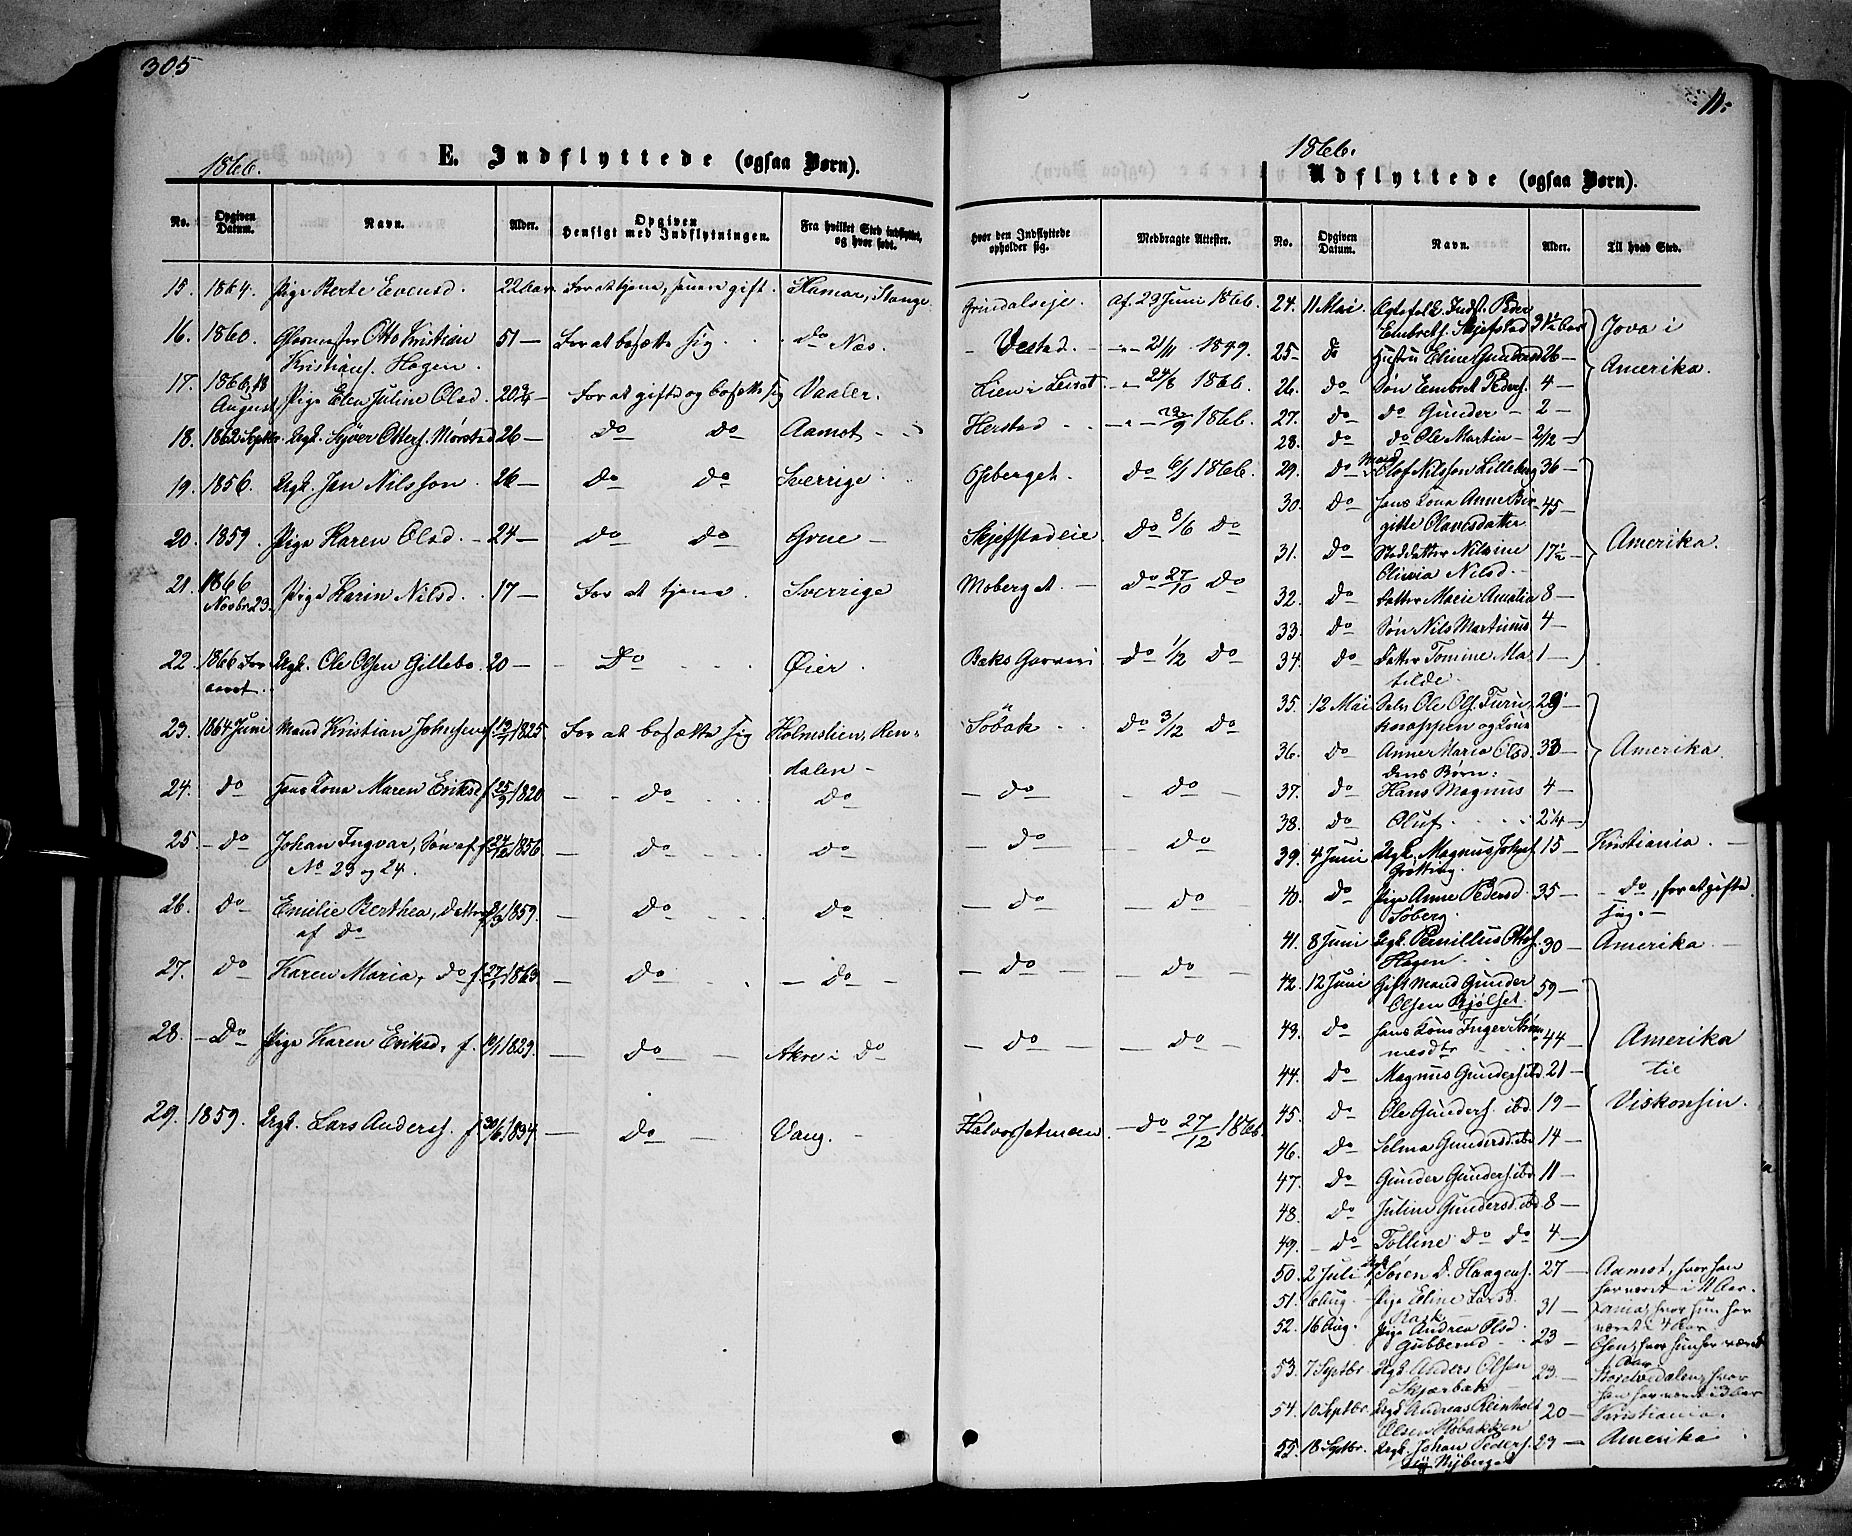 305
11.
1866.
E. Indflyttede (ogsaa Børn).
No. Opgiven Datum. Navn. Alder. Opgiven Hensigt med Indflytningen. Fra hvilket Sted indflyttet, og hvor født. Hvor den Indflyttede opholder sig. Medbragte Attester.
15. 1864. Pige Berte Evensd. 22 Aar For at tjene, senere gift. Hamar, Stange. Grindalseje. af 29 Juni 1866.
16. 1860. Glarmester Otto Kristian 51 — For at bosætte sig. do Næs. Vestad. 2/11 1849.
Kristians. Hagen.
17. 1866, 18 August Pige Elen Juline Olsd. 20 3/4 — For at gifte og bosætte sig Vaaler. Lien i Leiret 24/8 1866.
18. 1862 Septbr. Ungk. Syver Otters. Mørstad 26 — do do Aamot Herstad 1866.
19. 1856. Ungk. Jan Nilsson. 26 — do do Sverrige. Opberget. do 6/1 1866.
20. 1859. Pige Karen Olsd. 24 — do do Grue — Skjefstadeie do 8/6 do
21. 1866 Novbr 23. Pige Karin Nilsd. 17 — For at tjene. Sverrige Moberget — do 27/10 do
22. 1866 Foraaret. Ungk. Ole Olsen Gillebo. 20 — Do Øier. Bæks Garveri do 1/12 do
23. 1864 Juni Mand Kristian Johnsen f. 13/7 1825 For at bosætte sig Holmslien, Rendalen — Søbak do 3/12 do
24. do Hans Kone Maren Eriksd f. 25/9 1820 do do do do
25. do Johan Ingvar, Søn af f. 1856 do do do do
No 23 og 24.
26. do Emilie Berthea, datter 1859. do do do do
af do
27. do Karen Maria, do f. 27/1 1863 do do do do
28. Do Pige Karen Eriksd. f. 1829. do Akre i do do do
29. 1859. Ungk. Lars Anders. f 30/6 1834 do Vang. Halvorsetmoen. do 27/12 1866.
1866.
Udflyttede (ogsaa Børn).
No. Opgiven Datum. Navn. Alder. Til hvad Sted.
24. 11 Mai Ægtefolk Indst. Peder
Embrets. Skjefstad 31 1/2 Aar Jova i
25. do Hustru Eline Gundersd 26 — Amerika.
26. do Søn Embret Peders. 4 —
27. do do Gunder — 2 —
28. do do Ole Martin — 2/12 —
29. do Mand Olof Nilsson Lilleberg 36 —
30. do hans Kone Anne Birgitte Olavesdatter 45 —
31. do Steddatter Nilsine 17 1/2 — Amerika.
Olivia Nilsd.
32. do Datter Marie Amalia 8 —
33. do Søn Nils Martinus 4 —
34. do Datter Tomine Matilde 1 —
35. 12 Mai Selv. Ole Ols. Furuknappen og Kone 29
36. do Anne Maria Olsd 33 Amerika
dens Børn:
37. do Hans Magnus 4 —
38. do Oluf 2 1/4 —
39. 4 Juni Ungk. Magnus Johs. 15 — Kristiania.
Grötting.
40. do Pige Anne Pedersd. 35 — do, for at gifte
Søberg. sig. —
41. 8 Juni Ungk. Pernillus Ottos. 30 — Amerika
Hagen.
42. 12 Juni Gift Mand Gunder 59 —
Olsen Bjølset.
43. do hans Kone Inger 44 — Amerika
44. do Magnus Gunders. ibd 21 — til
45. do Ole Gunders. ibd. 19 — Viskonsin.
46. do Selma Gundersd. ibd 14 —
47. do Gunder Gunders. ibd 11 —
48. do Juline Gundersd. ibd 8 —
49. do Tolline do do 4 —
50. 2 Juli Ungk Søren D. Haagens. 27 — Aamot, hvor han
har været i Aar.
51. 6 Aug. Pige Eline Larsd. 31 — hvor hun har
været i 4 Aar
52. 16 Aug. Pige Andrea Olsd. 23 — hvor hun har været
Gubberud Aar
53. 7 Septbr. Ungk Anders Olsen 23 — hvor
Skjærbæk han har været i 3 Aar
54. 10 Septbr. Ungk Andreas Reinhold 20 — Kristiania.
Olsen
55. 18 Septbr. Ungk. Johan Peders. 29 — Amerika
Nyberget